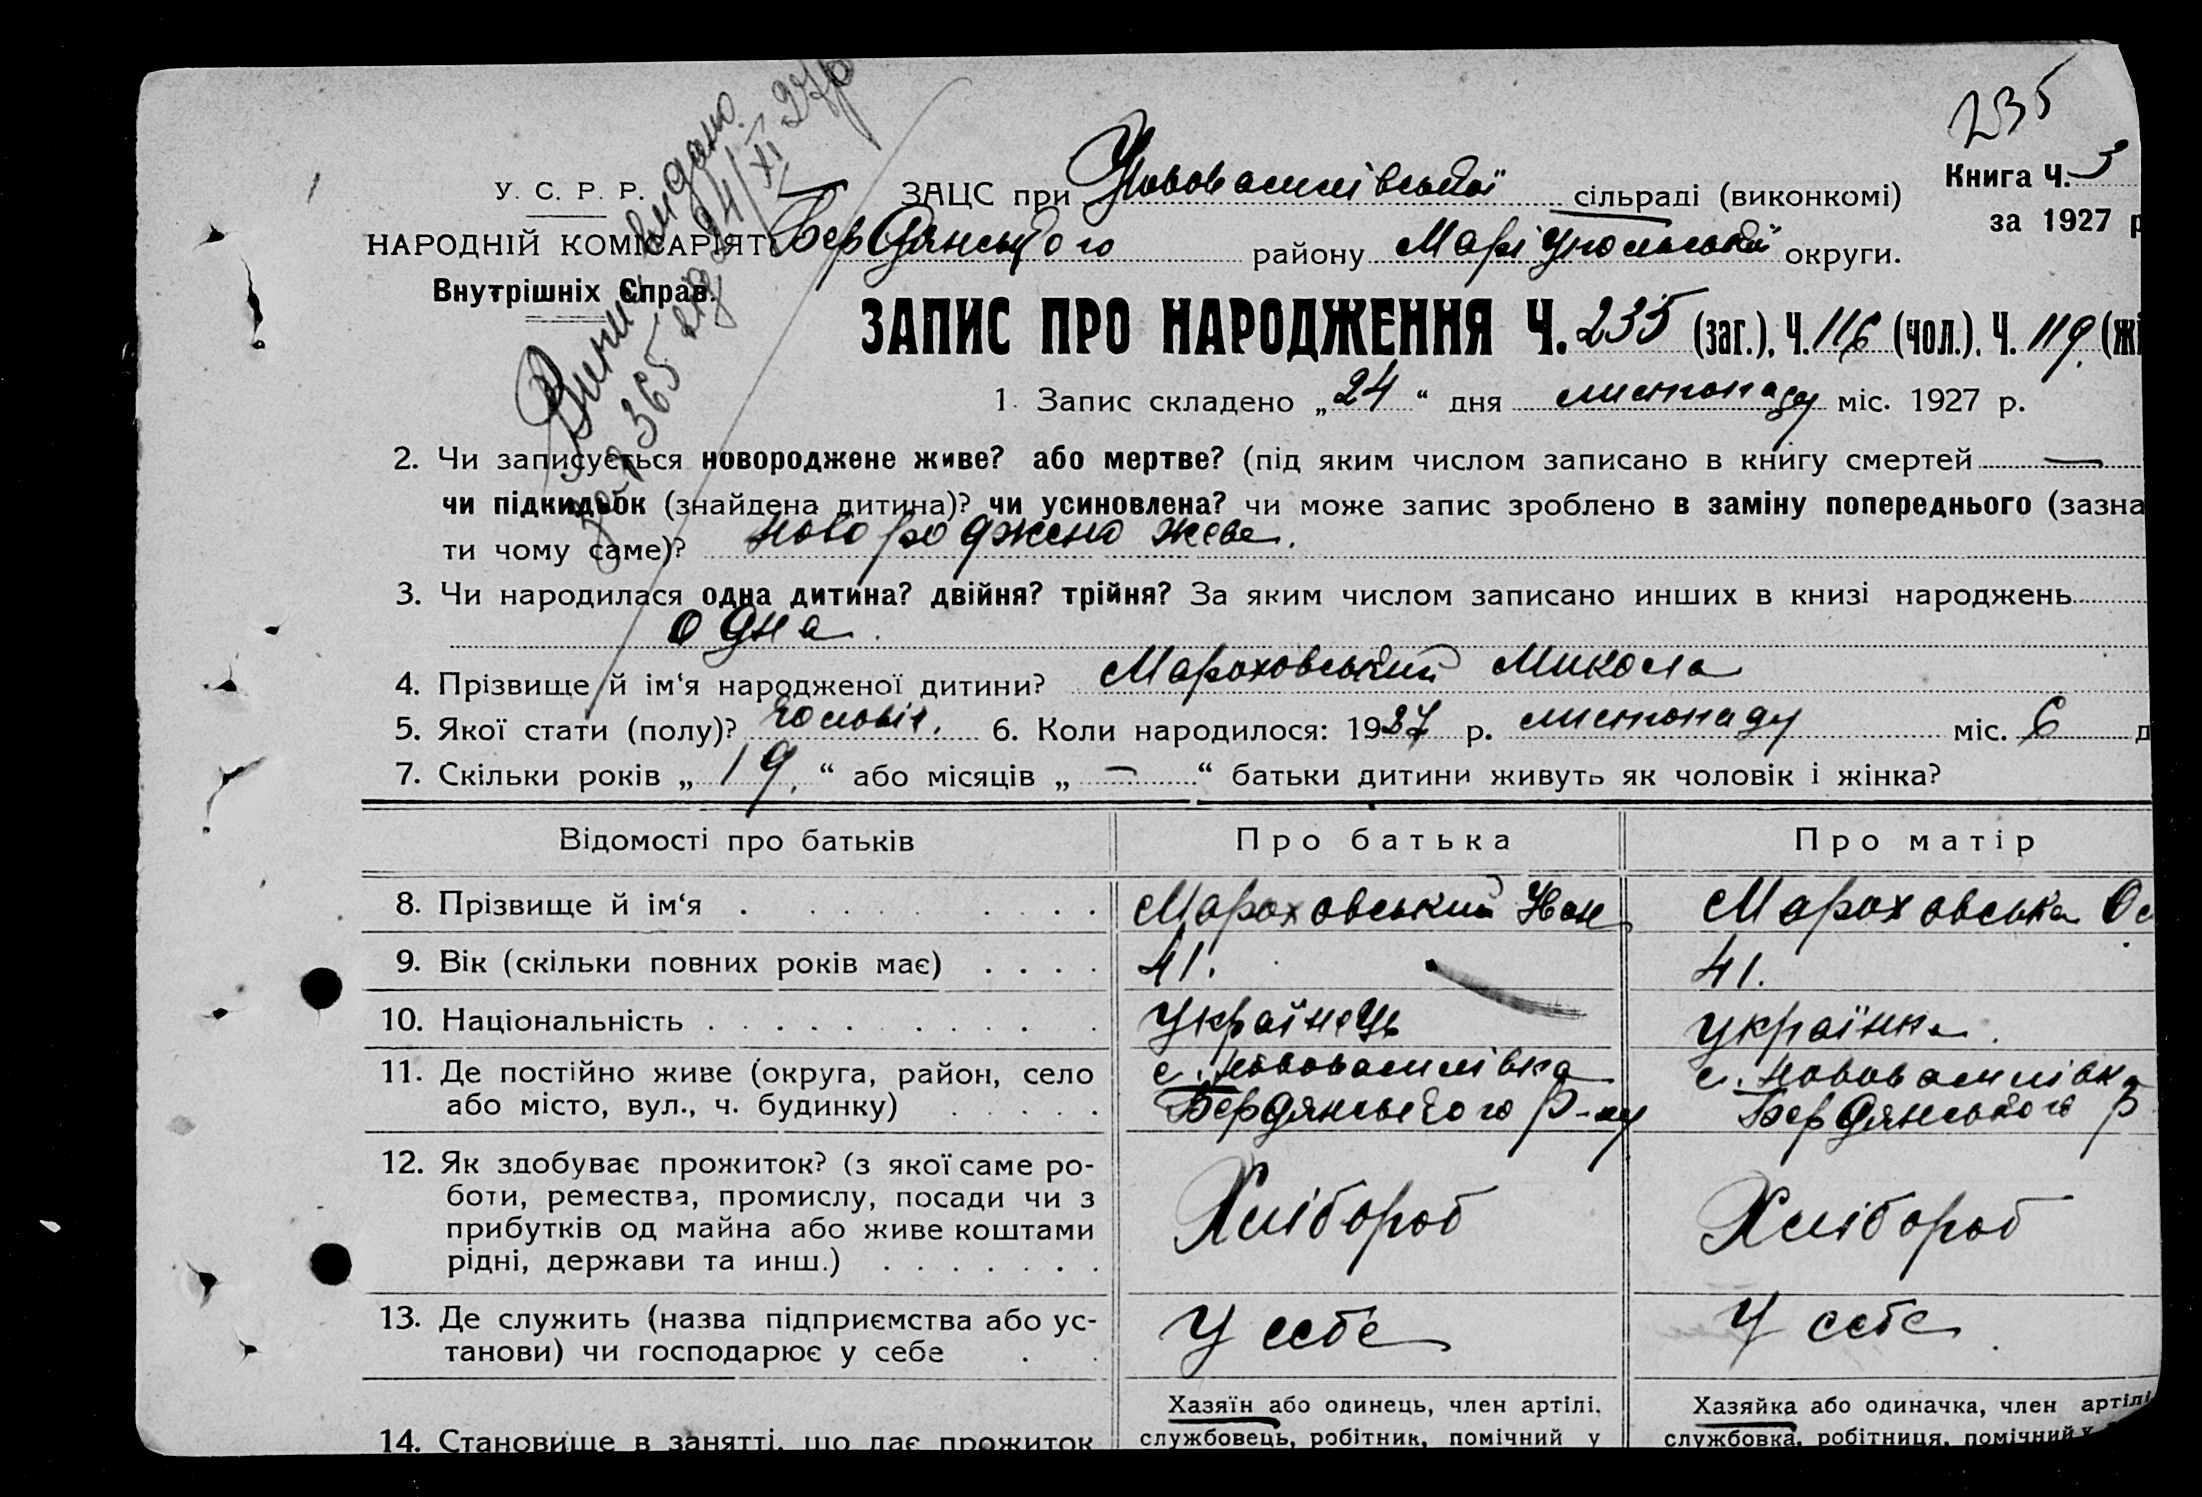 235
У. С. Р. Р.
ЗАЦС при Нововасилівської сільраді (виконкомі)
Книга Ч. 3
за 1927 р
НАРОДНІЙ КОМІСАРІЯТ
Бердянського району Маріупольської округи.
Внутрішніх Справ.
Випис видано.
за № 365 від 24/XI-27р
ЗАПИС ПРО НАРОДЖЕННЯ Ч. 235 (заг.), Ч. 116 (чол.), Ч. 119. (жі
1. Запис складено „24“ дня листопаду міс. 1927 р.
2. Чи записується новороджене живе? або мертве? (під яким числом записано в книгу смертей —
чи підкидьок (знайдена дитина)? чи усиновлена? чи може запис зроблено в заміну попереднього (зазна
ти чому саме)? новороджено живе.
3. Чи народилася одна дитина? двійня? трійня? За яким числом записано инших в книзі народжень
одна.
4. Прізвище й ім‘я народженої дитини? Мароховський Микола
5. Якої стати (полу)? чоловіч. 6. Коли народилося: 1927 р. листопаду міс. 6 д
7. Скільки років „19.“ або місяців „—“ батьки дитини живуть як чоловік і жінка?
Відомості про батьків Про батька Про матір
8. Прізвище й ім‘я Мароховський Іван Мароховська
9. Вік (скільки повних років має) 41. 41.
10. Національність Українець українка.
11. Де постійно живе (округа, район, село с. Нововасилівка с. Нововасилівка
або місто, вул., ч. будинку) Бердянського р-ну Бердянського р
12. Як здобуває прожиток? (з якої саме ро-
боти, ремества, промислу, посади чи з
прибутків од майна або живе коштами Хлібороб Хлібороб
рідні, держави та инш.)
13. Де служить (назва підприємства або ус- У себе У себе.
танови) чи господарює у себе
Хазяїн або одинець, член артілі, Хазяйка або одиначка, член артілі
14. Становище в занятті, що дає прожиток службовець, робітник, помічний у службовка, робітниця, помічний у